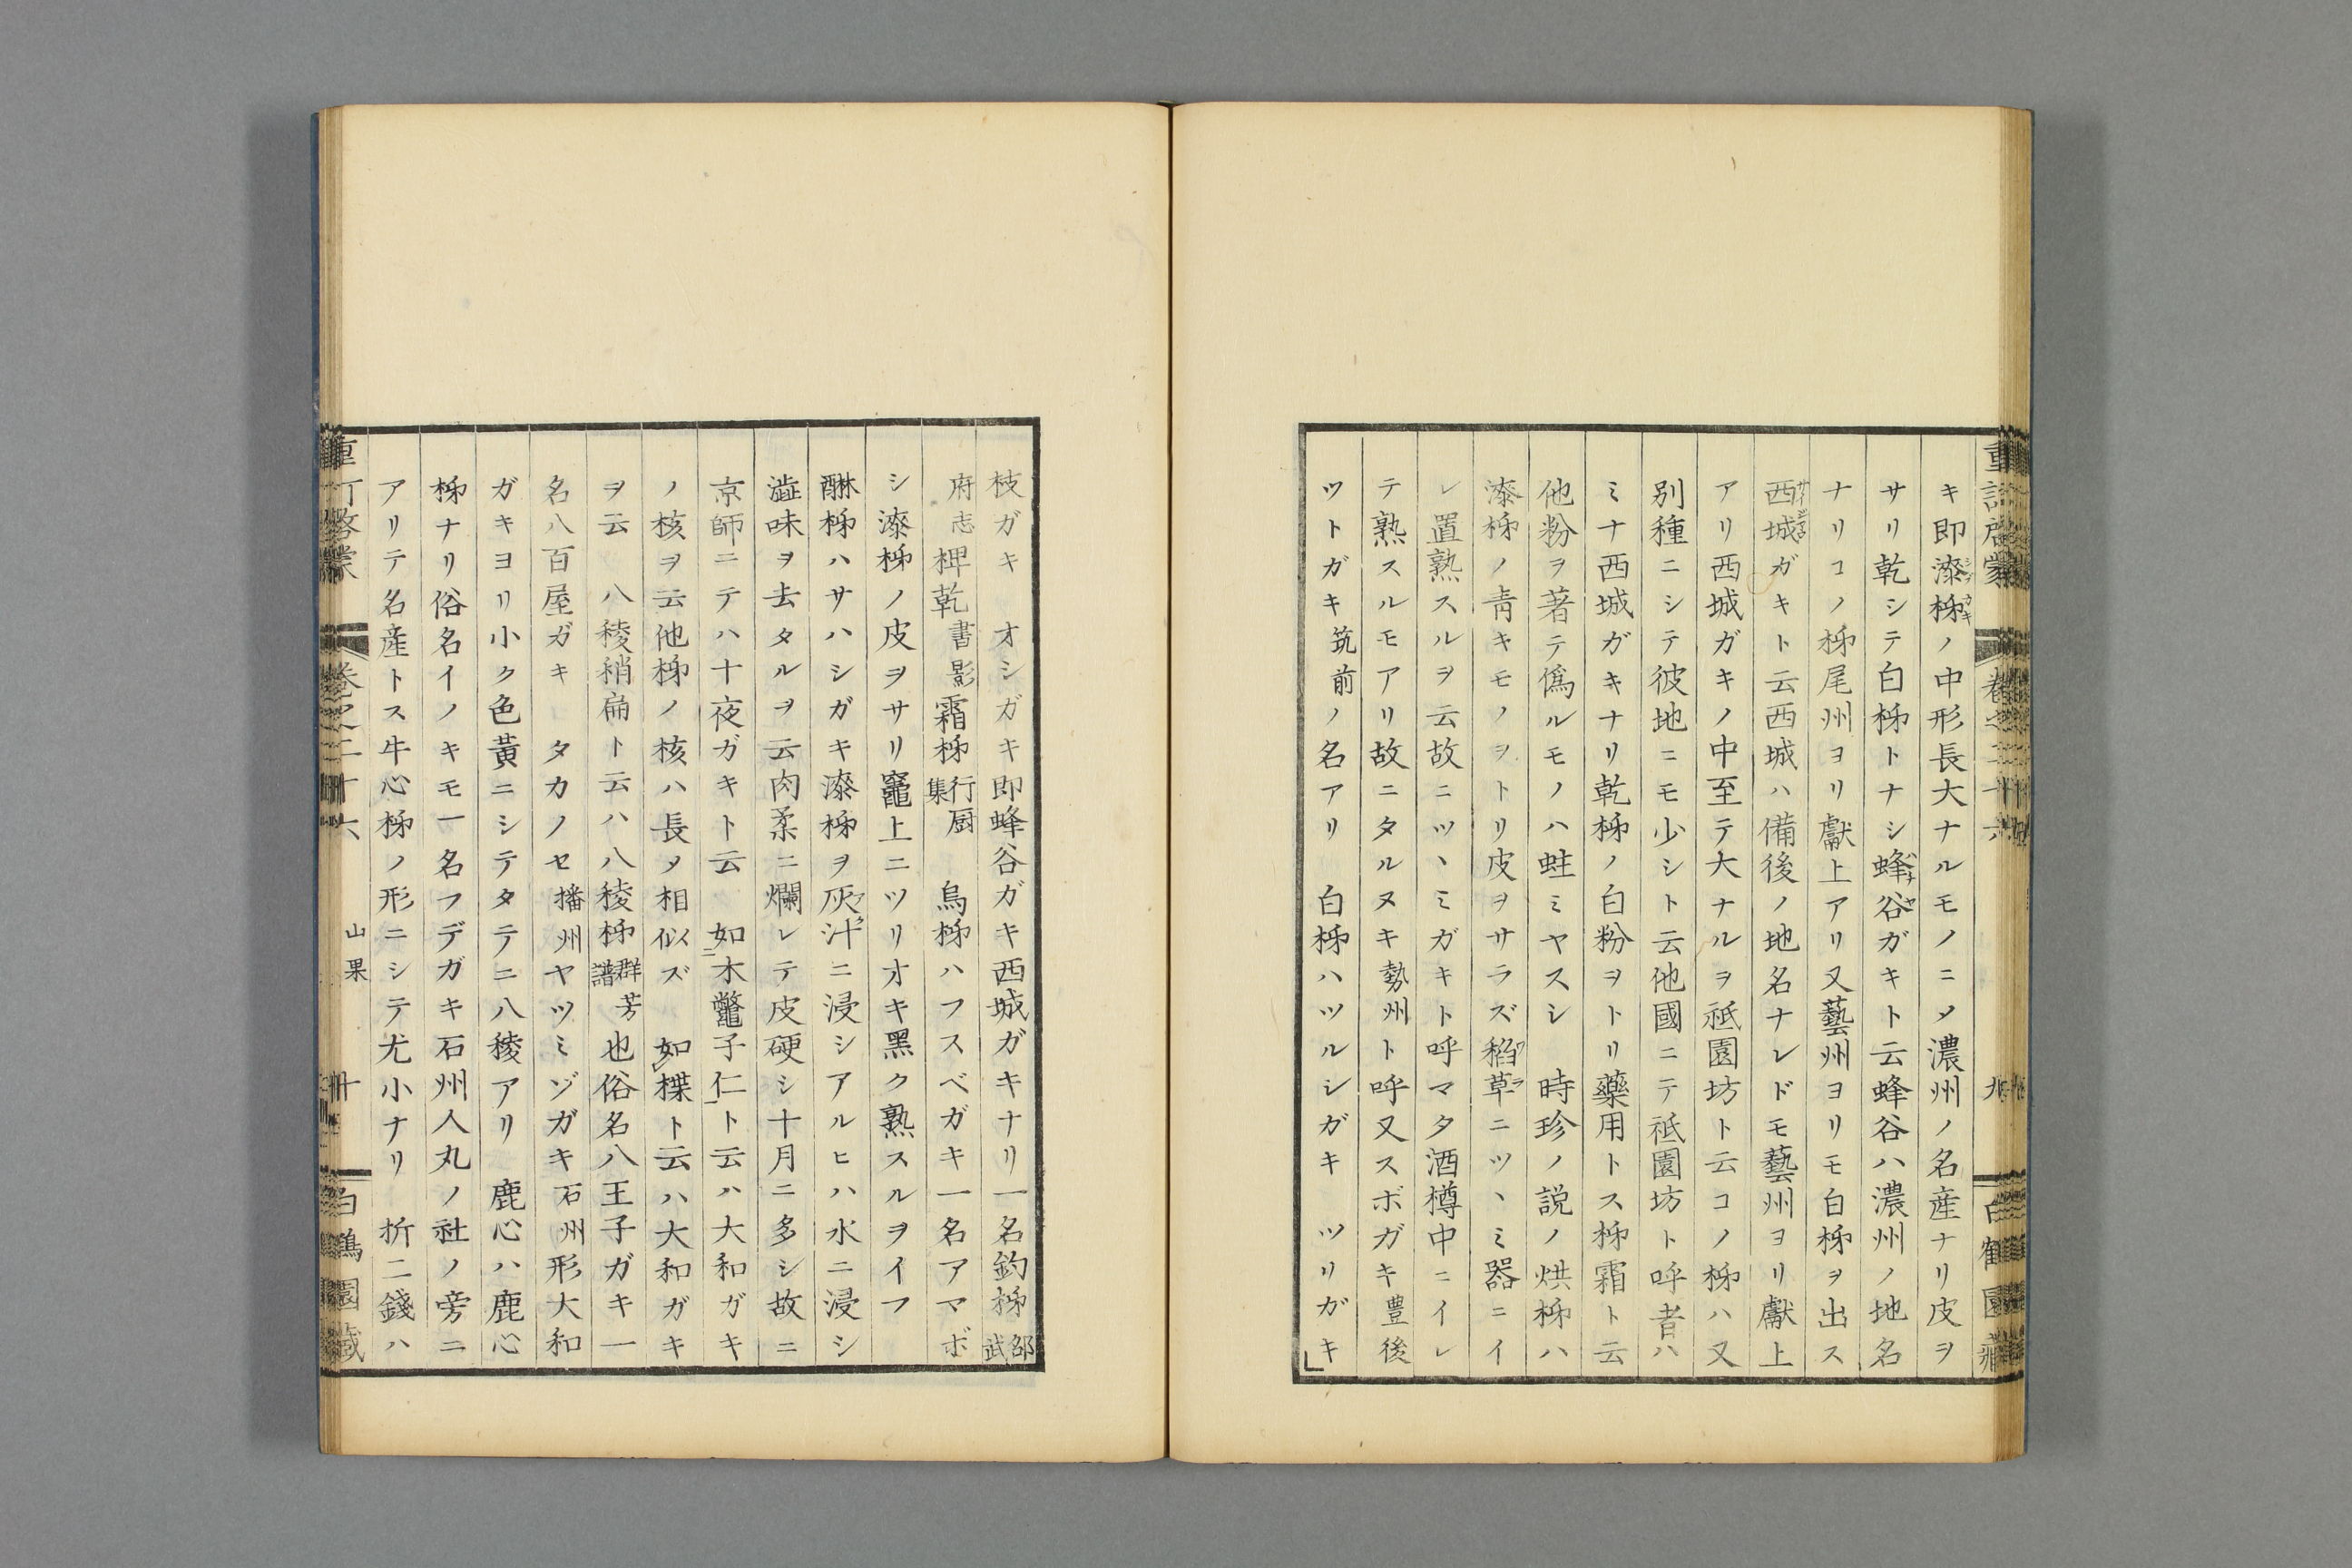 キ即漆柹ノ中形長大ナルモノニㄨ濃州ノ名産ナリ皮ヲ
サリ乾シテ白柹トナシ蜂谷ガキト云蜂谷ハ濃州ノ地名
ナリコノ柹尾州ヨリ獻上アリ又藝州ヨリモ白柹ヲ出ス
西城ガキト云西城ハ備後ノ地名ナレドモ藝州ヨリ獻上
アリ西城ガキノ中至テ大ナルヲ祗園坊ト云コノ柹ハ又
別種ニシテ彼地ニモ少シト云他國ニテ祗園坊ト呼者ハ
ミナ西城ガキナリ乾柹ノ白粉ヲトリ藥用トス柹霜ト云
他粉ヲ著テ僞ルモノハ蛀ミヤスシ 時珍ノ説ノ烘柹ハ
漆柹ノ青キモノヲトリ皮ヲサラズ稻草ニツヽミ器ニイ
レ置熟スルヲ云故ニツヽミガキト呼マタ酒樽中ニイレ
テ熟スルモアリ故ニタルヌキ勢州ト呼又スボガキ豊後
ツトガキ筑前ノ名アリ 白柹ハツルシガキ ツリガキ
枝ガキ オシガキ即蜂谷ガキ西城ガキナリ一名釣柹邵武
府志 椑乾書影 霜柹行厨集 烏柹ハフスベガキ一名アマボ
シ漆柹ノ皮ヲサリ竈上ニツリオキ黑ク熟スルヲイフ
醂柹ハサハシガキ漆柹ヲ灰汁ニ浸シアルヒハ水ニ浸シ
澁味ヲ去タルヲ云肉柔ニ爛レテ皮硬シ十月ニ多シ故ニ
京師ニテハ十夜ガキト云 如木鼈子仁ト云ハ大和ガキ
ノ核ヲ云他柹ノ核ハ長ㄨ相似ズ 如楪ト云ハ大和ガキ
ヲ云 八稜稍扁ト云ハ八稜柹群芳譜也俗名八王子ガキ一
名八百屋ガキ タカノセ播州ヤツミゾガキ石州形大和
ガキヨリ小ク色黃ニシテタテニ八稜アリ 鹿心ハ鹿心
柹ナリ俗名イノキモ一名フデガキ石州人丸ノ社ノ旁ニ
アリテ名産トス牛心柹ノ形ニシテ尤小ナリ 折二錢ハ
山果
十